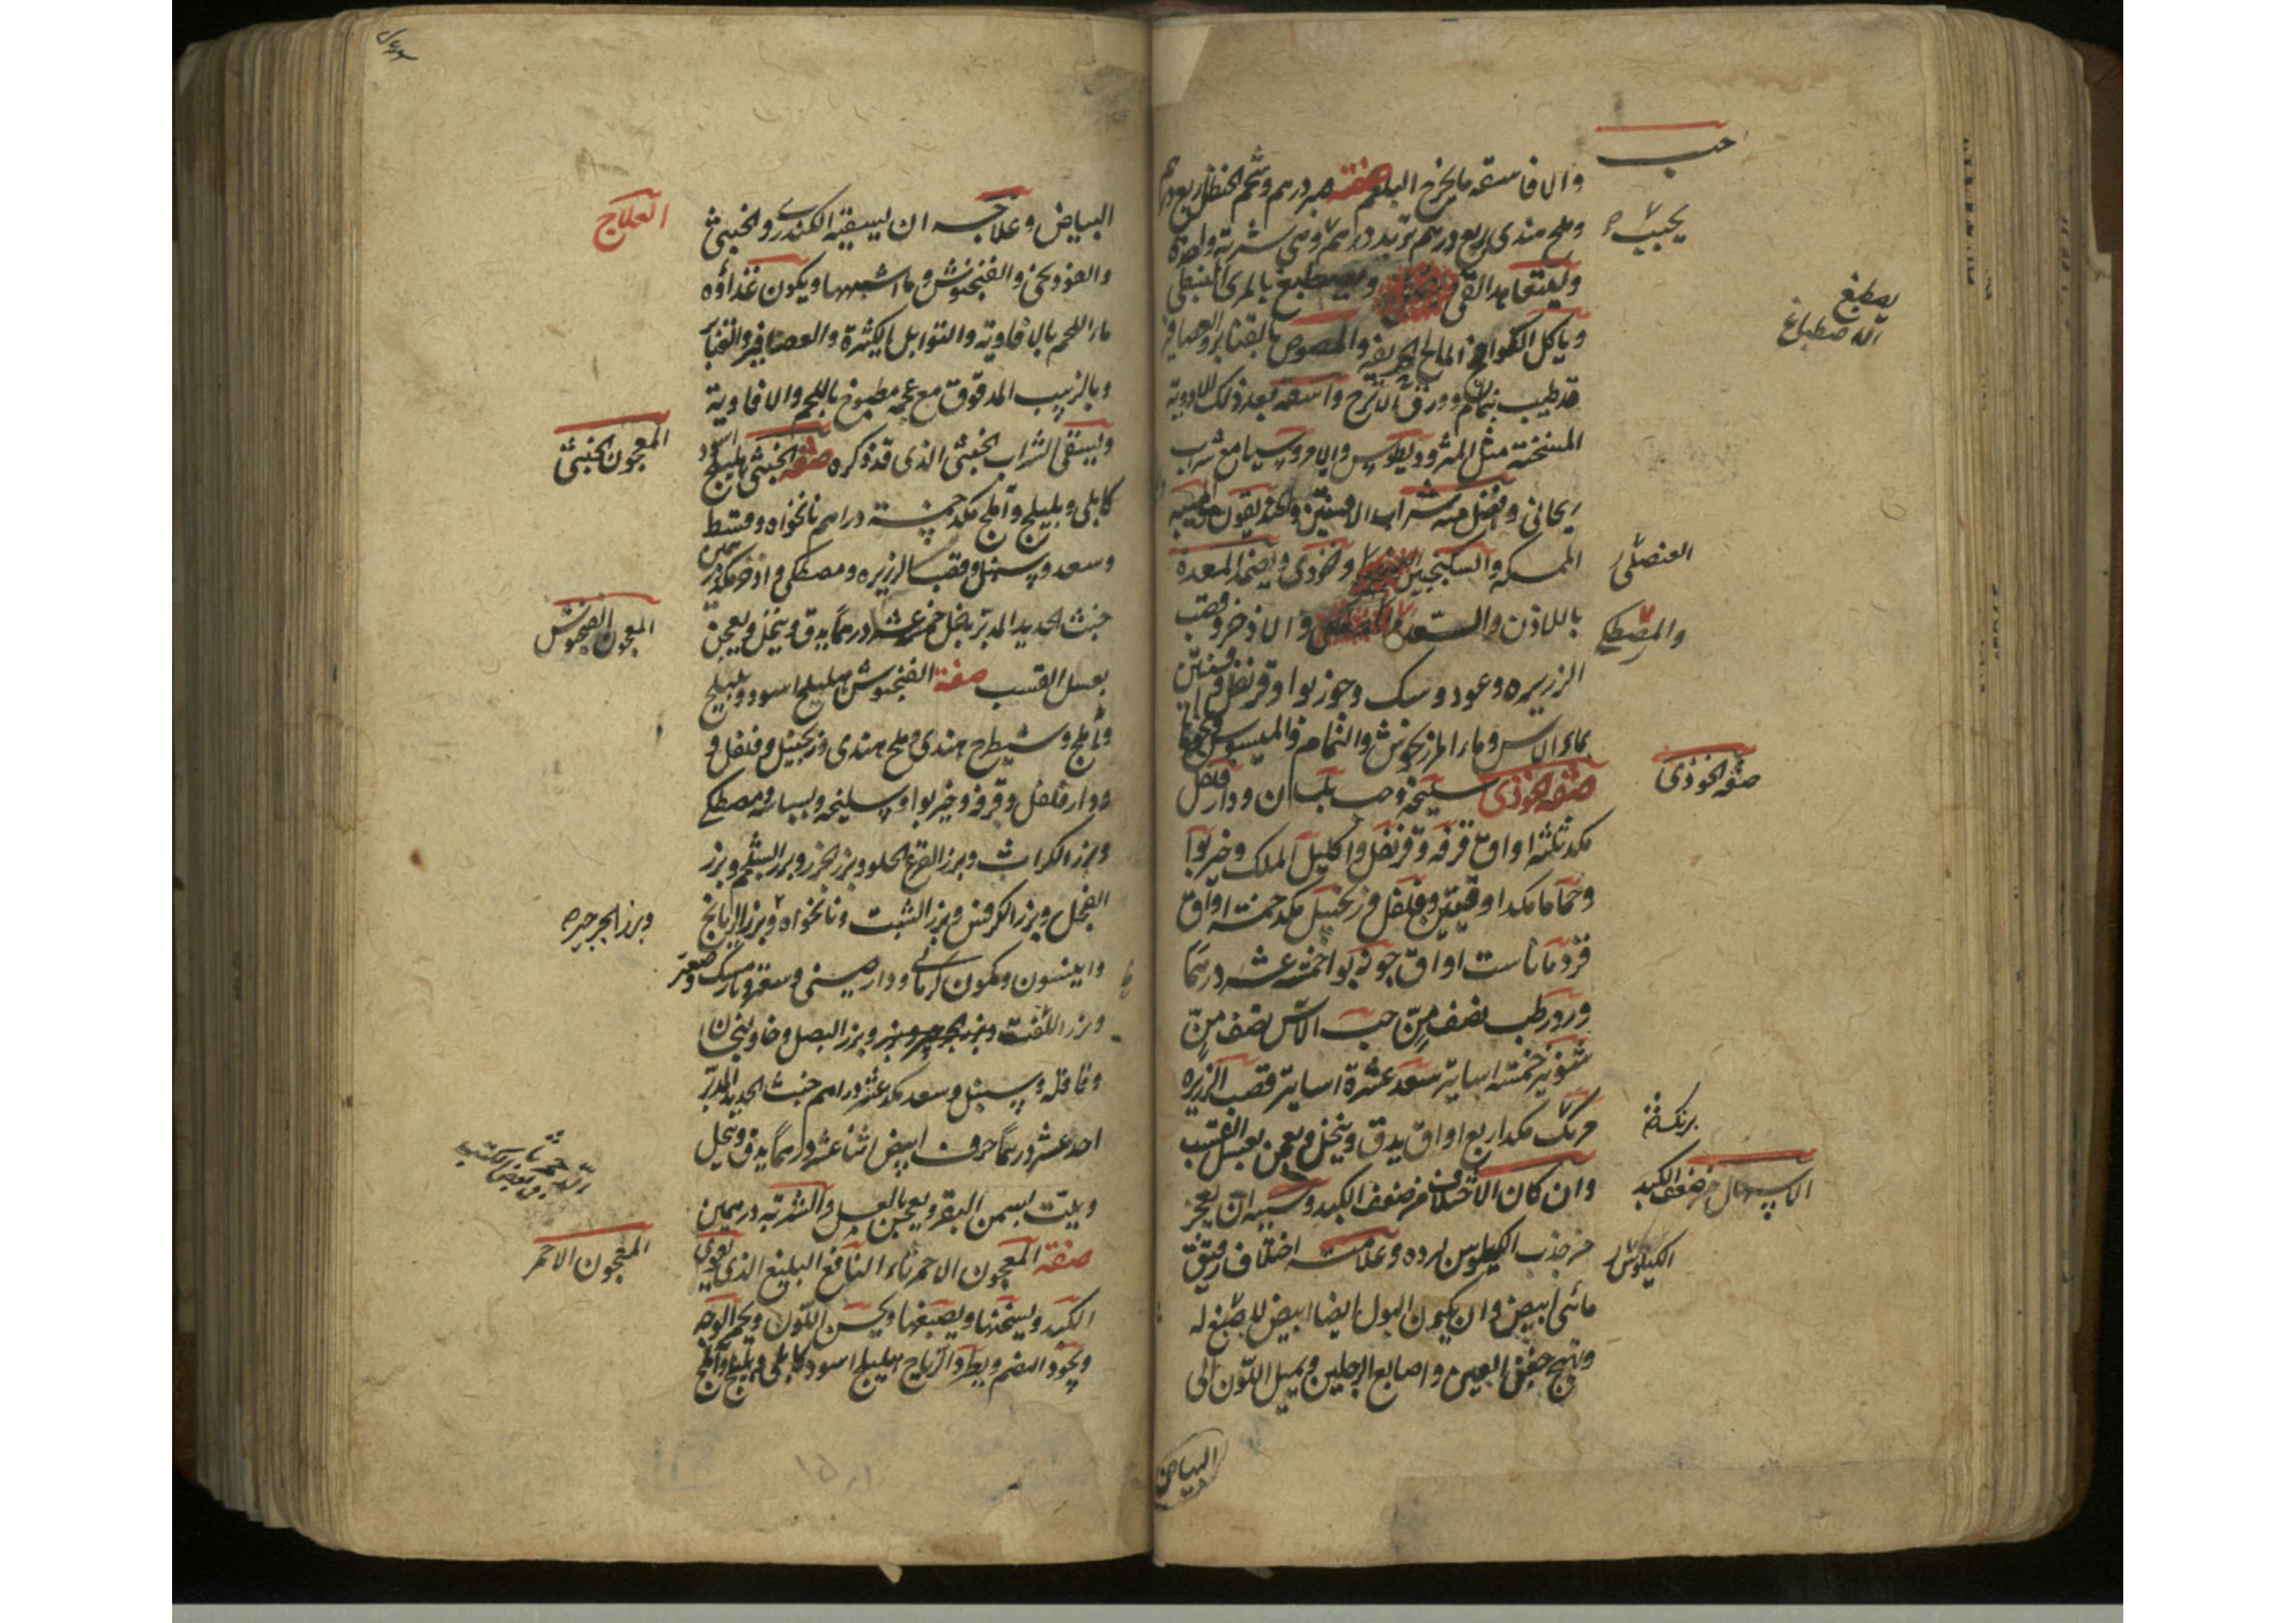 حب
والا فاسقه ما يخرج البلغم صفته صبر درهم وشحم الحنظل ربع درهم
وملح هندى ربع درهم تربد درهم وهى شربة واحدة
وليتعاهد القى ويصطبغ بالمرى النبطى
وياكل الكوامخ المالح الحريفه والمصوص بالقنابر والعصافير
قد طيب بنمام وورق الاترج واسقه بعد ذلك الادوية
المسخنة مثل المثروديطوس والامروسيا مع شراب
ريحانى وافضل منه شراب الافسنتين والخنديقون والميبه
الممسكه والسكنجبين وخوذى ويضمد المعدة
باللاذن والسعد والاذخر وقصب
الزريره وعود وسك وجوز بوا وقرنفل وافسنتين
بماء الاس وماء المرزنجوش والنمام والميسوسن
صفه الخوذى سليخه وحب بلسان ودار فلفل
مكد ثلثه اواق قرفه وقرنفل واكليل الملك وخير بوا
وحماما مكد اوقيتين وفلفل وزنجبيل مكد خمسة اواق
قردمانا ست اواق جوز بوا خمسة عشر درهما
وورد رطب نصف من حب الاس نصف من
شونيز خمسة اساتير سعد عشرة اساتير قصب الزريره
مكد اربع اواق يدق وينخل ويعجن بعسل القسب
وان كان الاختلاف من ضعف الكبد وسببه ان يعجز
من جذب الكيلوس لبرده وعلامته اختلاف رقيق
مائى ابيض وان يكون البول ايضا ابيض لا صبغ له
وتهيج جفن العين واصابع الرجلين ويميل اللون الى
يصطبغ
اله صطباغ
العنصلى
والمصطكى
صفه الخوذى
الاسهال من ضعف الكبد
الكيلوس
البياض
البياض وعلاجه ان يسقيه الكندرى والخبثى
والفوذنجى والفنجنوش وما اشبهها ويكون غذاؤه
ماء اللحم بالافاويه والتوابل الكثيرة والعصافير والقنابر
وبالزبيب المدقوق مع عجمه مطبوخ باللحم والافاوية
ويسقى الشراب الخبثى الذى قد ذكره صفه الخبثى هليلج اسود
كابلى وبليلج وآملج مكد خمسة دراهم نانخواه وقسط
وسعد وسنبل وقصب الزريره ومصطكى واذخر مكد درهمين
خبث الحديد المدبر بخل خمسة عشر درهما يدق وينخل ويعجن
بعسل القسب صفة الفنجنوش هليلج اسود وبليلج
واملج وشيطرج هندى وملح هندى وزنجبيل وفلفل و
ودار فلفل وقرفه وخير بوا وسليخه وبسباسه ومصطكى
وبزر الكراث وبزر القرع الحلو وبزر الجزر وبزر الشلجم وبزر
الفجل وبزر الكرفس وبزر الشبت ونانخواه وبزر الرازيانج
وانيسون وكمون كرمانى ودارصينى وسعتر ونارمسك
وبزر اللفت وبزر البصل وخاولنجان
وقاقله وسنبل وسعد مكد عشر دراهم خبث الحديد المدبر
احد عشر درهما حرف ابيض اثنا عشر درهما يدق وينخل
ويلت بسمن البقر ويعجن بالعسل والشربه درهمين
صفة المعجون الاحمر ثاء النافع البليغ الذى يقوى
الكبد ويسخنها ويصبغها ويحسن اللون ويحمر الوجه
ويجود الهضم ويطرد الرياح هليلج اسود كابلى وبليلج واملج
العلاج
المعجون الخبثى
المعجون الفنجنوش
وبزر الجرجير
المعجون الاحمر